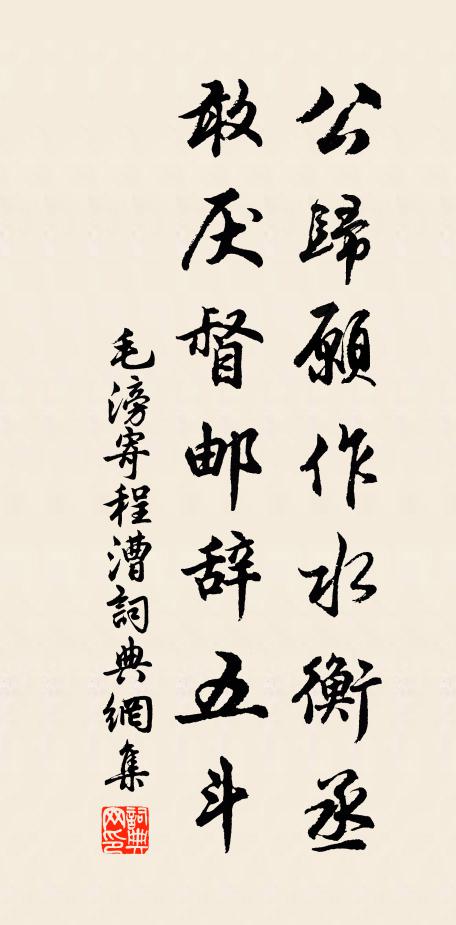 公歸願作水衡丞
敢厌督邮辞五斗
毛滂寄程漕詞典網集
詞典網印